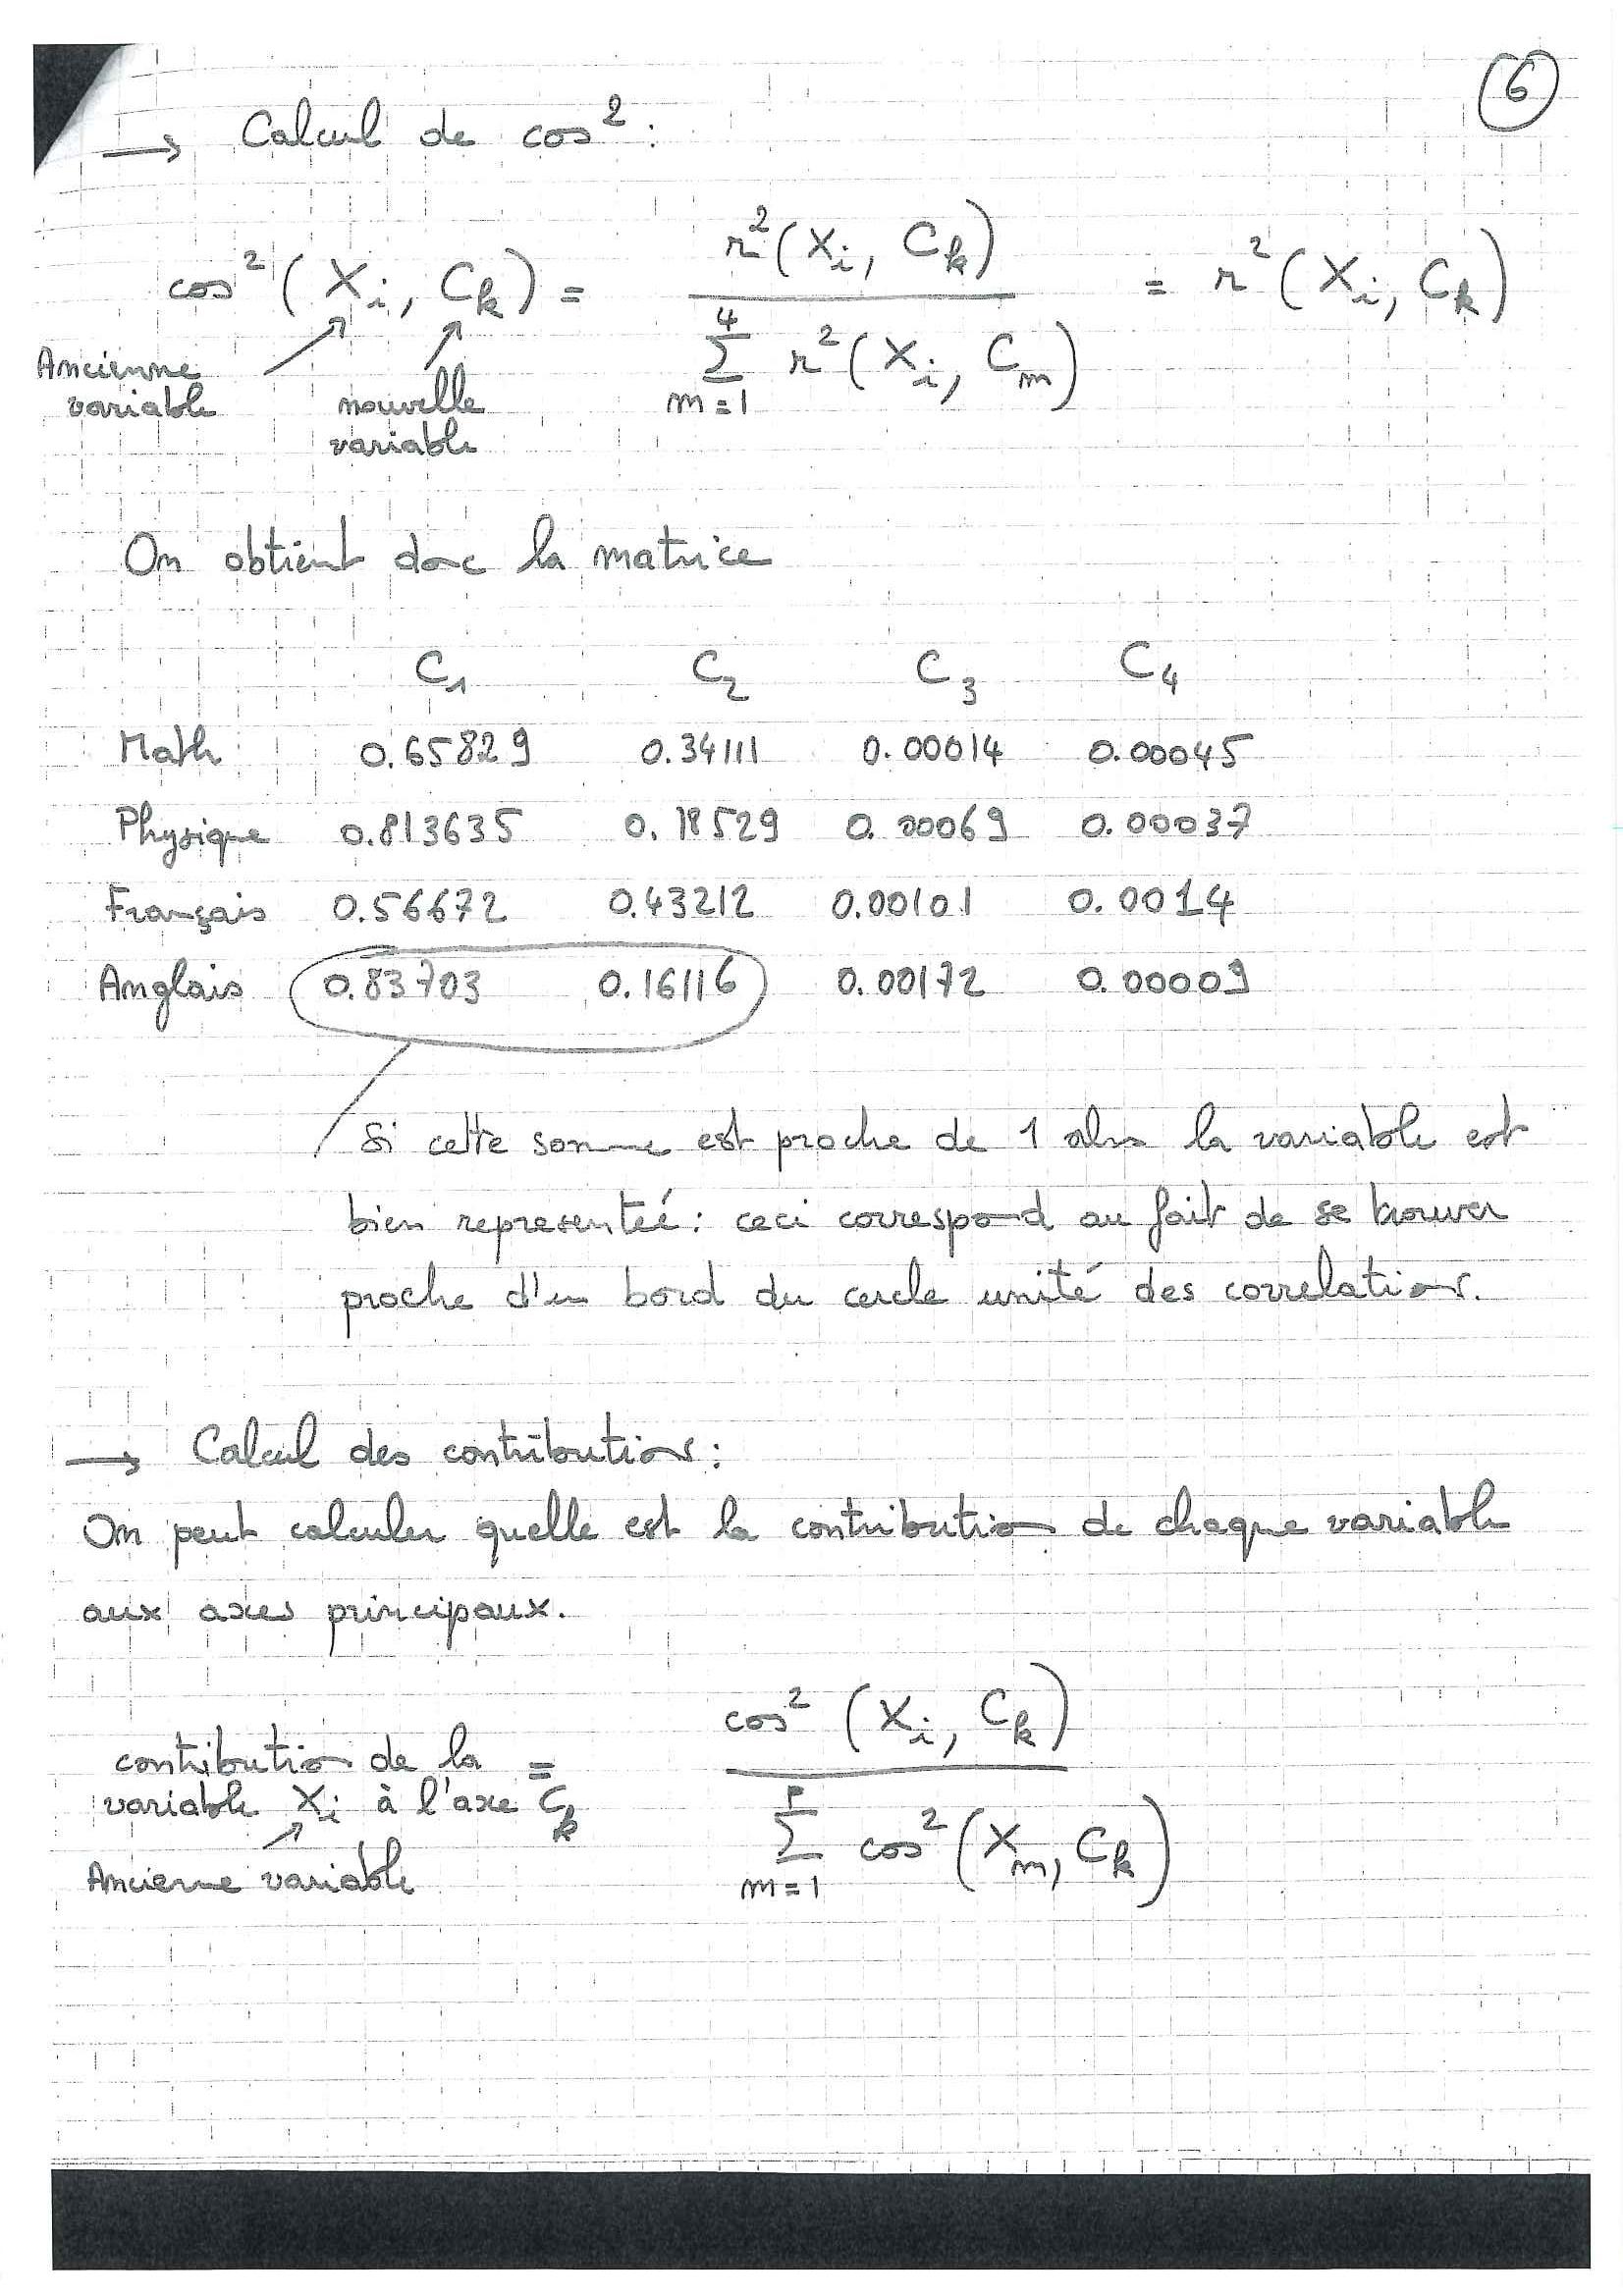 6
→ Calcul de cos² :
cos² (Xi, Ck) = r²(Xi, Ck) / Σ_{m=1}^{4} r²(Xi, Cm) = r²(Xi, Ck)
Ancienne variable
nouvelle variable
On obtient donc la matrice
C1 C2 C3 C4
Math 0.65829 0.34111 0.00014 0.00045
Physique 0.813635 0.18529 0.00069 0.00037
Français 0.56672 0.43212 0.00101 0.0014
Anglais 0.83703 0.16116 0.00172 0.00009
Si cette somme est proche de 1 alors la variable est
bien representée : ceci correspond au fait de se trouver
proche d'un bord du cercle unité des correlations.
→ Calcul des contributions :
On peut calculer quelle est la contribution de chaque variable
aux axes principaux.
contribution de la variable Xi à l'axe Ck = cos² (Xi, Ck) / Σ_{m=1}^{p} cos² (Xm, Ck)
Ancienne variable